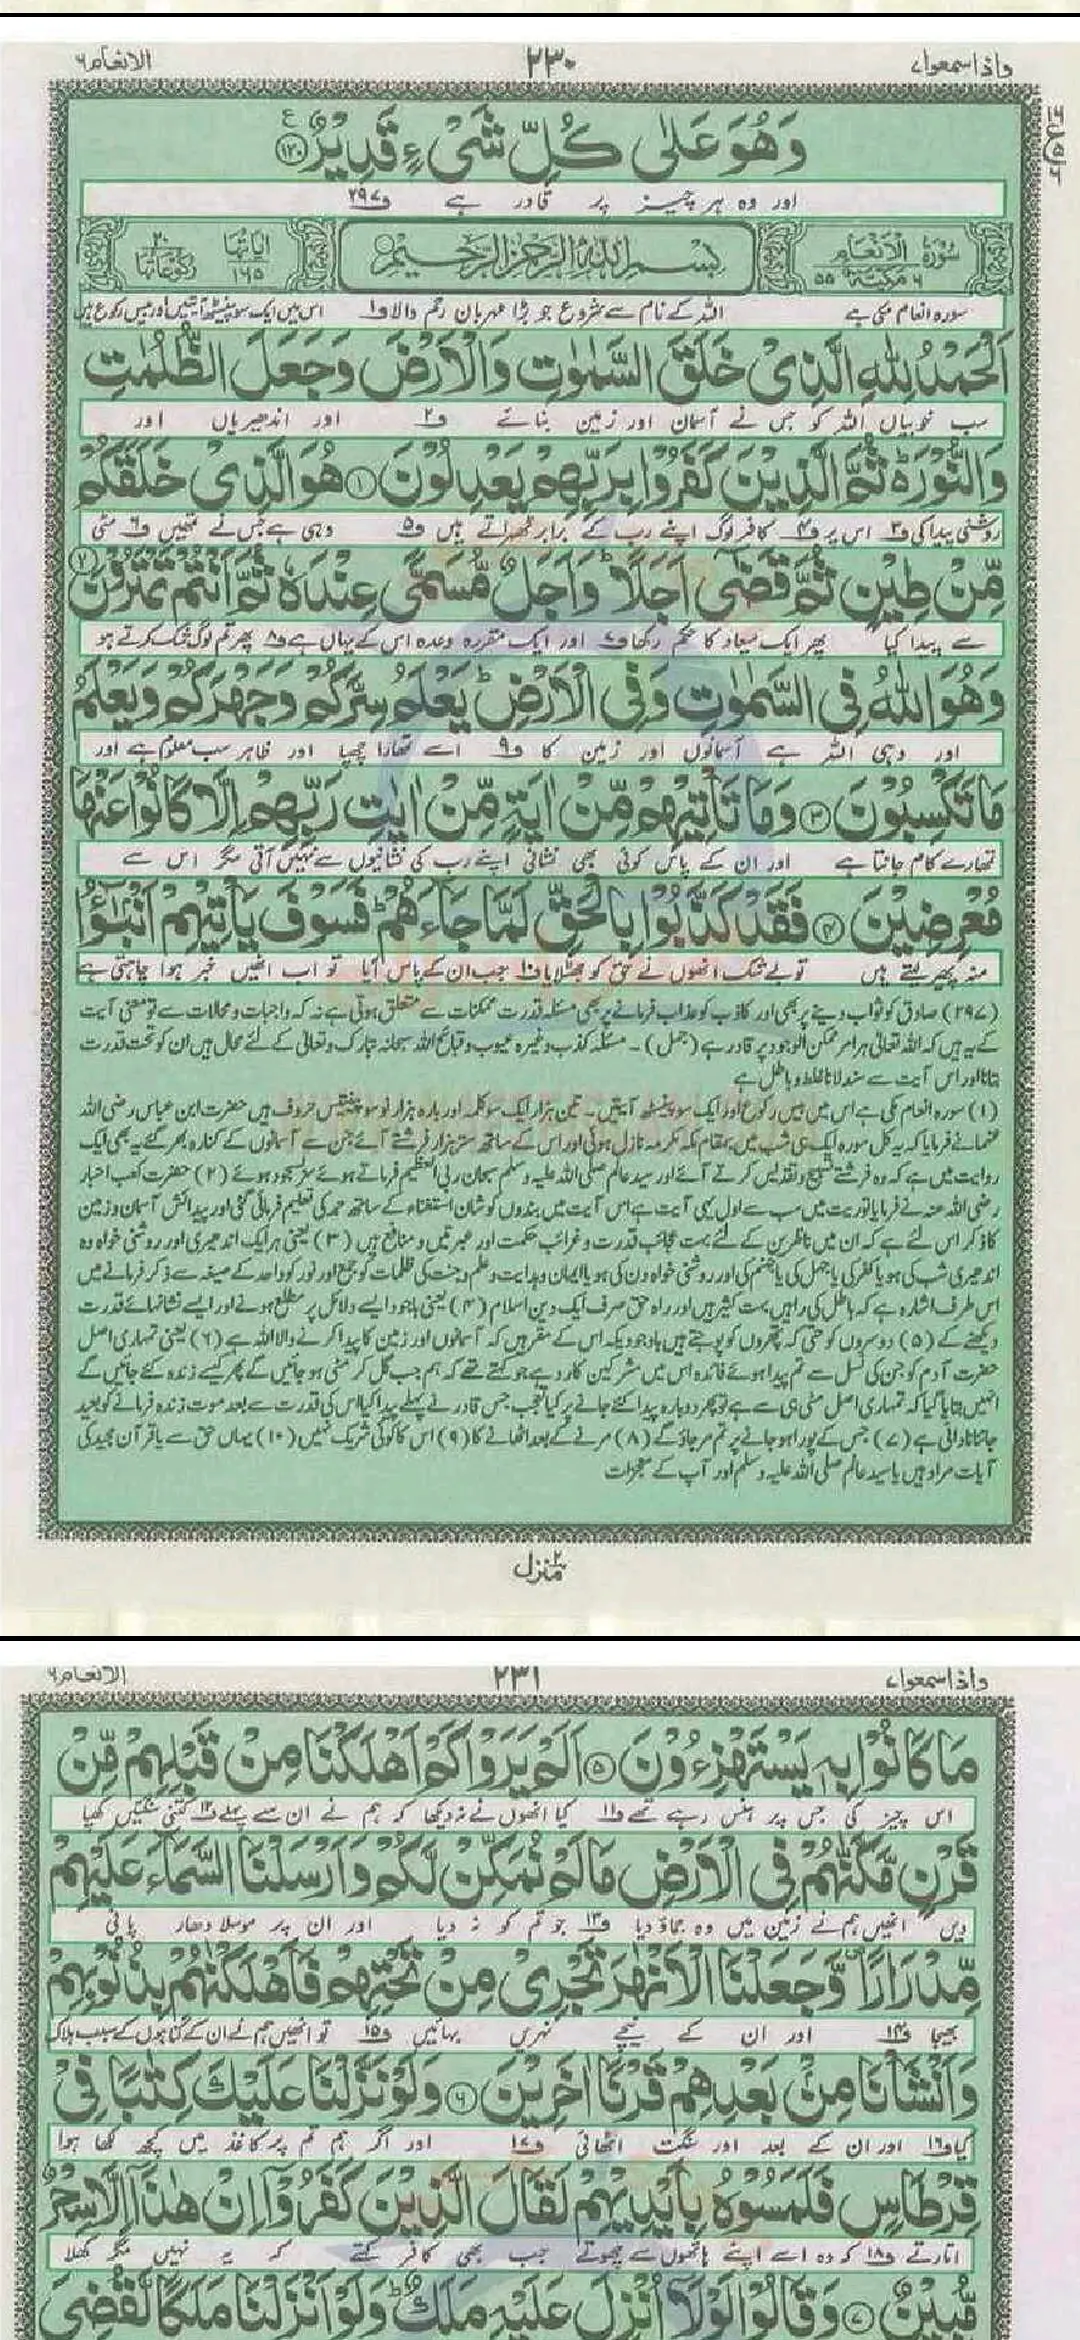 واذا سمعوا۷ ۲۳۰ الانعام۶
وَهُوَ عَلٰى كُلِّ شَىْءٍ قَدِيْرٌ ۝۱۲۰ ع
اور وہ ہر چیز پر قادر ہے ف۲۹۷
سُوْرَةُ الْاَنْعَامِ مَكِّيَّةٌ ۶ ۵۵ بِسْمِ اللّٰهِ الرَّحْمٰنِ الرَّحِيْمِ اٰيَاتُهَا ۱۶۵ رُكُوْعَاتُهَا ۲۰
سورہ انعام مکی ہے اللہ کے نام سے شروع جو بڑا مہربان رحم والا ف۱ اس میں ایک سو پینسٹھ آیتیں اور بیس رکوع ہیں
اَلْحَمْدُ لِلّٰهِ الَّذِىْ خَلَقَ السَّمٰوٰتِ وَالْاَرْضَ وَجَعَلَ الظُّلُمٰتِ
سب خوبیاں اللہ کو جس نے آسمان اور زمین بنائے ف۲ اور اندھیریاں اور
وَالنُّوْرَ ؕ ثُمَّ الَّذِيْنَ كَفَرُوْا بِرَبِّهِمْ يَعْدِلُوْنَ ۝۱ هُوَ الَّذِىْ خَلَقَكُمْ
روشنی پیدا کی ف۳ اس پر ف۴ کافر لوگ اپنے رب کے برابر ٹھہراتے ہیں ف۵ وہی ہے جس نے تمھیں ف۶ مٹی
مِّنْ طِيْنٍ ثُمَّ قَضٰٓى اَجَلًا ؕ وَاَجَلٌ مُّسَمًّى عِنْدَهٗ ثُمَّ اَنْتُمْ تَمْتَرُوْنَ ۝۲
سے پیدا کیا پھر ایک میعاد کا حکم رکھا ف۷ اور ایک مقررہ وعدہ اس کے یہاں ہے ف۸ پھر تم لوگ شک کرتے ہو
وَهُوَ اللّٰهُ فِى السَّمٰوٰتِ وَفِى الْاَرْضِ ؕ يَعْلَمُ سِرَّكُمْ وَجَهْرَكُمْ وَيَعْلَمُ
اور وہی اللہ ہے آسمانوں اور زمین کا ف۹ اسے تمھارا چھپا اور ظاہر سب معلوم ہے اور
مَا تَكْسِبُوْنَ ۝۳ وَمَا تَاْتِيْهِمْ مِّنْ اٰيَةٍ مِّنْ اٰيٰتِ رَبِّهِمْ اِلَّا كَانُوْا عَنْهَا
تمھارے کام جانتا ہے اور ان کے پاس کوئی بھی نشانی اپنے رب کی نشانیوں سے نہیں آتی مگر اس سے
مُعْرِضِيْنَ ۝۴ فَقَدْ كَذَّبُوْا بِالْحَقِّ لَمَّا جَآءَهُمْ ؕ فَسَوْفَ يَاْتِيْهِمْ اَنْۢبٰٓؤُا
منہ پھیر لیتے ہیں تو بے شک انھوں نے حق کو جھٹلایا ف۱۰ جب ان کے پاس آیا تو اب انھیں خبر ہوا چاہتی ہے
(۲۹۷) صادق کو ثواب دینے پر بھی اور کاذب کو عذاب فرمانے پر بھی مسئلہ قدرت ممکنات سے متعلق ہوتی ہے نہ کہ واجبات و محالات سے تو معنی آیت
کے یہ ہیں کہ اللہ تعالیٰ ہر امر ممکن الوجود پر قادر ہے (جمل)۔ مسئلہ کذب وغیرہ عیوب و قبائح اللہ سبحانہ تبارک و تعالیٰ کے لئے محال ہیں ان کو تحت قدرت
بتانا اور اس آیت سے سند لانا غلط و باطل ہے
(۱) سورہ انعام مکی ہے اس میں بیس رکوع اور ایک سو پینسٹھ آیتیں۔ تین ہزار ایک سو کلمے اور بارہ ہزار نو سو پینتیس حروف ہیں حضرت ابن عباس رضی اللہ
عنہما نے فرمایا کہ یہ کل سورہ ایک ہی شب میں بمقام مکہ مکرمہ نازل ہوئی اور اس کے ساتھ ستر ہزار فرشتے آئے جن سے آسمانوں کے کنارہ بھر گئے یہ بھی ایک
روایت میں ہے کہ وہ فرشتے تسبیح و تقدیس کرتے آئے اور سید عالم صلی اللہ علیہ وسلم سبحان ربی العظیم فرماتے ہوئے سر بسجود ہوئے (۲) حضرت کعب احبار
رضی اللہ عنہ نے فرمایا توریت میں سب سے اول یہی آیت ہے اس آیت میں بندوں کو شان استغناء کے ساتھ حمد کی تعلیم فرمائی گئی اور پیدائش آسمان و زمین
کا ذکر اس لئے ہے کہ ان میں ناظرین کے لئے بہت عجائب قدرت و غرائب حکمت اور عبرتیں و منافع ہیں (۳) یعنی ہر ایک اندھیری اور روشنی خواہ وہ
اندھیری شب کی ہو یا کفر کی یا جہل کی یا جہنم کی اور روشنی خواہ دن کی ہو یا ایمان و ہدایت و علم و جنت کی ظلمات کو جمع اور نور کو واحد کے صیغہ سے ذکر فرمانے میں
اس طرف اشارہ ہے کہ باطل کی راہیں بہت کثیر ہیں اور راہ حق صرف ایک دین اسلام (۴) یعنی باوجود ایسے دلائل پر مطلع ہونے اور ایسے نشانہائے قدرت
دیکھنے کے (۵) دوسروں کو حتی کہ پتھروں کو پوجتے ہیں باوجودیکہ اس کے مقر ہیں کہ آسمانوں اور زمین کا پیدا کرنے والا اللہ ہے (۶) یعنی تمہاری اصل
حضرت آدم کو جن کی نسل سے تم پیدا ہوئے فائدہ اس میں مشرکین کا رد ہے جو کہتے تھے کہ ہم جب گل کر مٹی ہو جائیں گے پھر کیسے زندہ کئے جائیں گے
انھیں بتایا گیا کہ تمہاری اصل مٹی ہی سے ہے تو پھر دوبارہ پیدا کئے جانے پر کیا تعجب جس قادر نے پہلے پیدا کیا اس کی قدرت سے بعد موت زندہ فرمانے کو بعید
جاننا نادانی ہے (۷) جس کے پورا ہو جانے پر تم مر جاؤ گے (۸) مرنے کے بعد اٹھانے کا (۹) اس کا کوئی شریک نہیں (۱۰) یہاں حق سے یا قرآن مجید کی
آیات مراد ہیں یا سید عالم صلی اللہ علیہ وسلم اور آپ کے معجزات
منزل ۲
واذا سمعوا۷ ۲۳۱ الانعام۶
مَا كَانُوْا بِهٖ يَسْتَهْزِءُوْنَ ۝۵ اَلَمْ يَرَوْا كَمْ اَهْلَكْنَا مِنْ قَبْلِهِمْ مِّنْ
اس چیز کی جس پر ہنس رہے تھے ف۱۱ کیا انھوں نے نہ دیکھا کہ ہم نے ان سے پہلے ف۱۲ کتنی سنگتیں کھپا
قَرْنٍ مَّكَّنّٰهُمْ فِى الْاَرْضِ مَا لَمْ نُمَكِّنْ لَّكُمْ وَاَرْسَلْنَا السَّمَآءَ عَلَيْهِمْ
دیں انھیں ہم نے زمین میں وہ جماؤ دیا ف۱۳ جو تم کو نہ دیا اور ان پر موسلا دھار پانی
مِّدْرَارًا وَّجَعَلْنَا الْاَنْهٰرَ تَجْرِىْ مِنْ تَحْتِهِمْ فَاَهْلَكْنٰهُمْ بِذُنُوْبِهِمْ
بھیجا ف۱۴ اور ان کے نیچے نہریں بہائیں ف۱۵ تو انھیں ہم نے ان کے گناہوں کے سبب ہلاک
وَاَنْشَاْنَا مِنْۢ بَعْدِهِمْ قَرْنًا اٰخَرِيْنَ ۝۶ وَلَوْ نَزَّلْنَا عَلَيْكَ كِتٰبًا فِىْ
کیا ف۱۶ اور ان کے بعد اور سنگت اٹھائی ف۱۷ اور اگر ہم تم پر کاغذ میں کچھ لکھا ہوا
قِرْطَاسٍ فَلَمَسُوْهُ بِاَيْدِيْهِمْ لَقَالَ الَّذِيْنَ كَفَرُوْٓا اِنْ هٰذَآ اِلَّا سِحْرٌ
اتارتے ف۱۸ کہ وہ اسے اپنے ہاتھوں سے چھوتے جب بھی کافر کہتے کہ یہ نہیں مگر کھلا
مُّبِيْنٌ ۝۷ وَقَالُوْا لَوْلَآ اُنْزِلَ عَلَيْهِ مَلَكٌ ؕ وَلَوْ اَنْزَلْنَا مَلَكًا لَّقُضِىَ